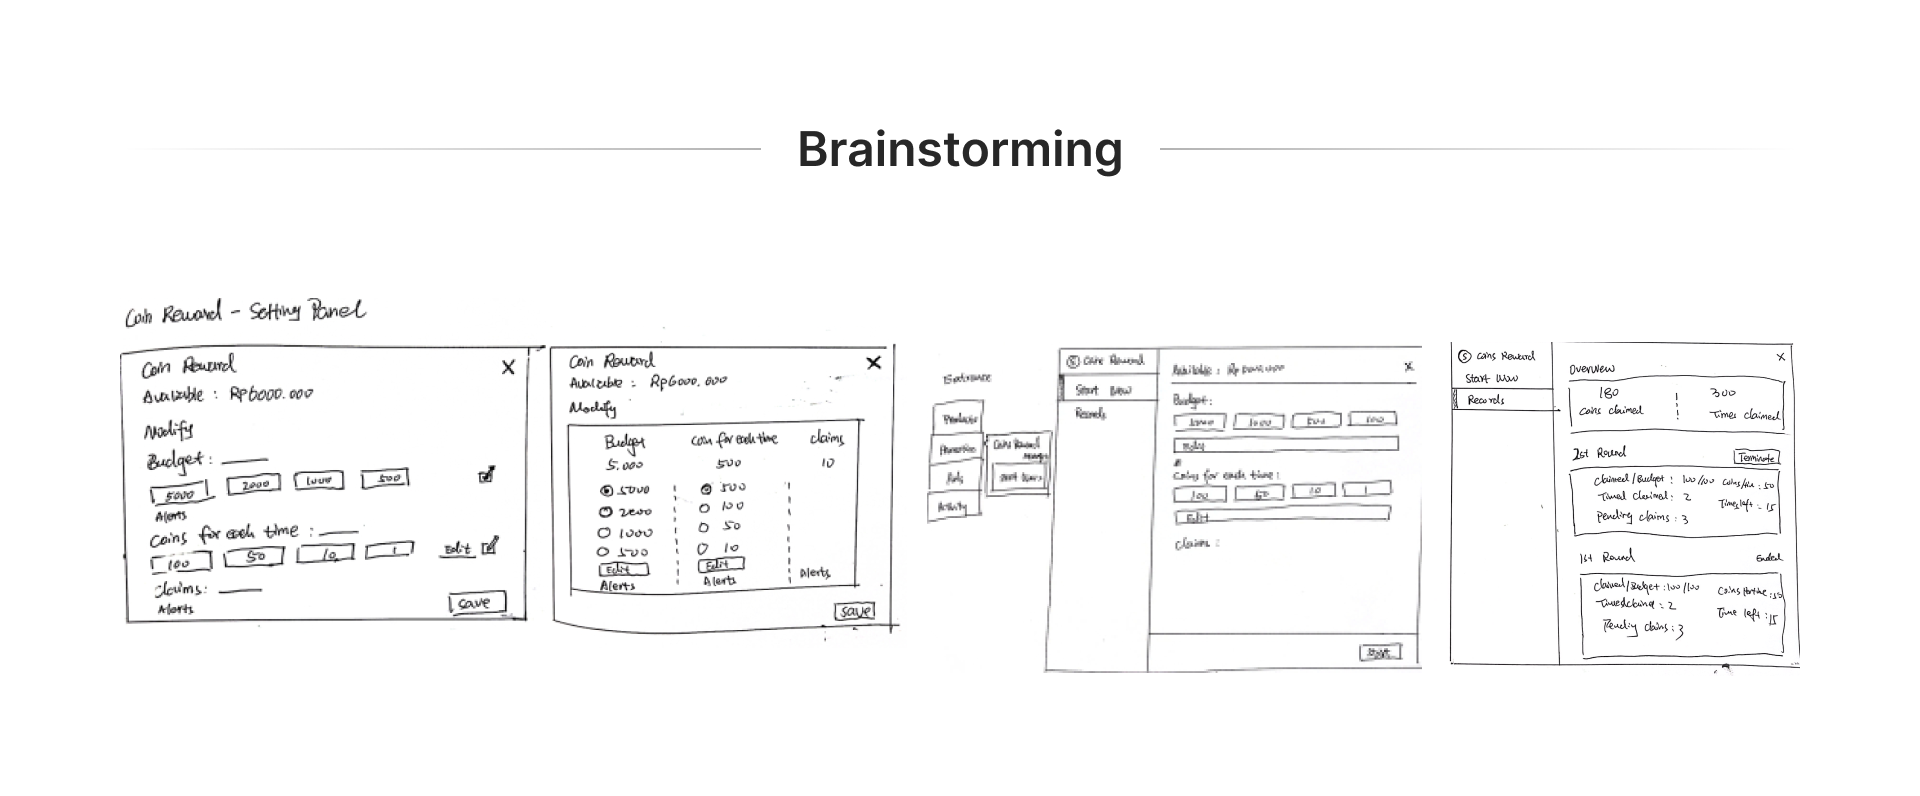 Brainstorming
Coin Reward - Setting Panel
Coin Reward X
Available : Rp6000.000
Modify
Budget :
5000 2000 1000 500
Alerts
Coins for each time :
100 50 10 1 Edit
Claims:
Alerts
Save
Coin Reward X
Available : Rp6000.000
Modify
Budget Coin for each time claims
5.000 500 10
5000 500
2000 100
1000 50
500 10
Edit Edit
Alerts Alerts Alerts
Save
Entrance
Products
Promotion
Ads
Activity
Coins Reward
S Coins Reward
Start New
Records
Available : Rp X
Budget :
1000 500 100
Coins for each time :
100 50 10 1
Edit
Claims :
Start
S Coins Reward
Start New
Records
X
Overview
180 300
Coins claimed Times claimed
2st Round Terminate
Claimed/Budget : 100/100 Coins/time : 50
Timed claimed : 2 Times left : 15
Pending claims : 3
1st Round Ended
Claimed/Budget : 100/100
Timed claimed : 2 Time left : 15
Pending claims : 3